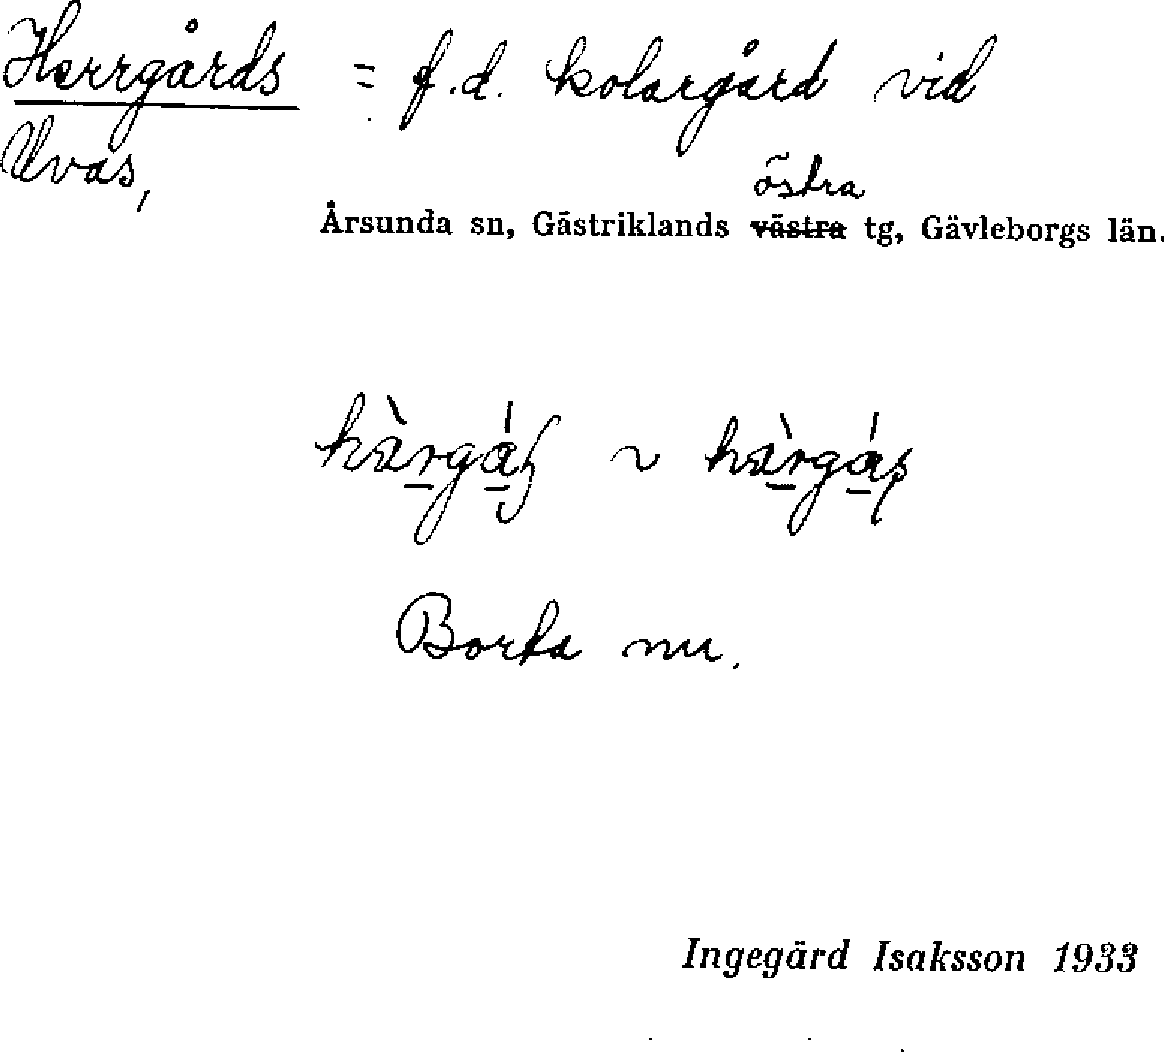 Herrgårds = f.d. kolargård vid
Uvas,
östra
Årsunda sn, Gästriklands västra tg, Gävleborgs län.
Borta nu.
Ingegärd Isaksson 1933